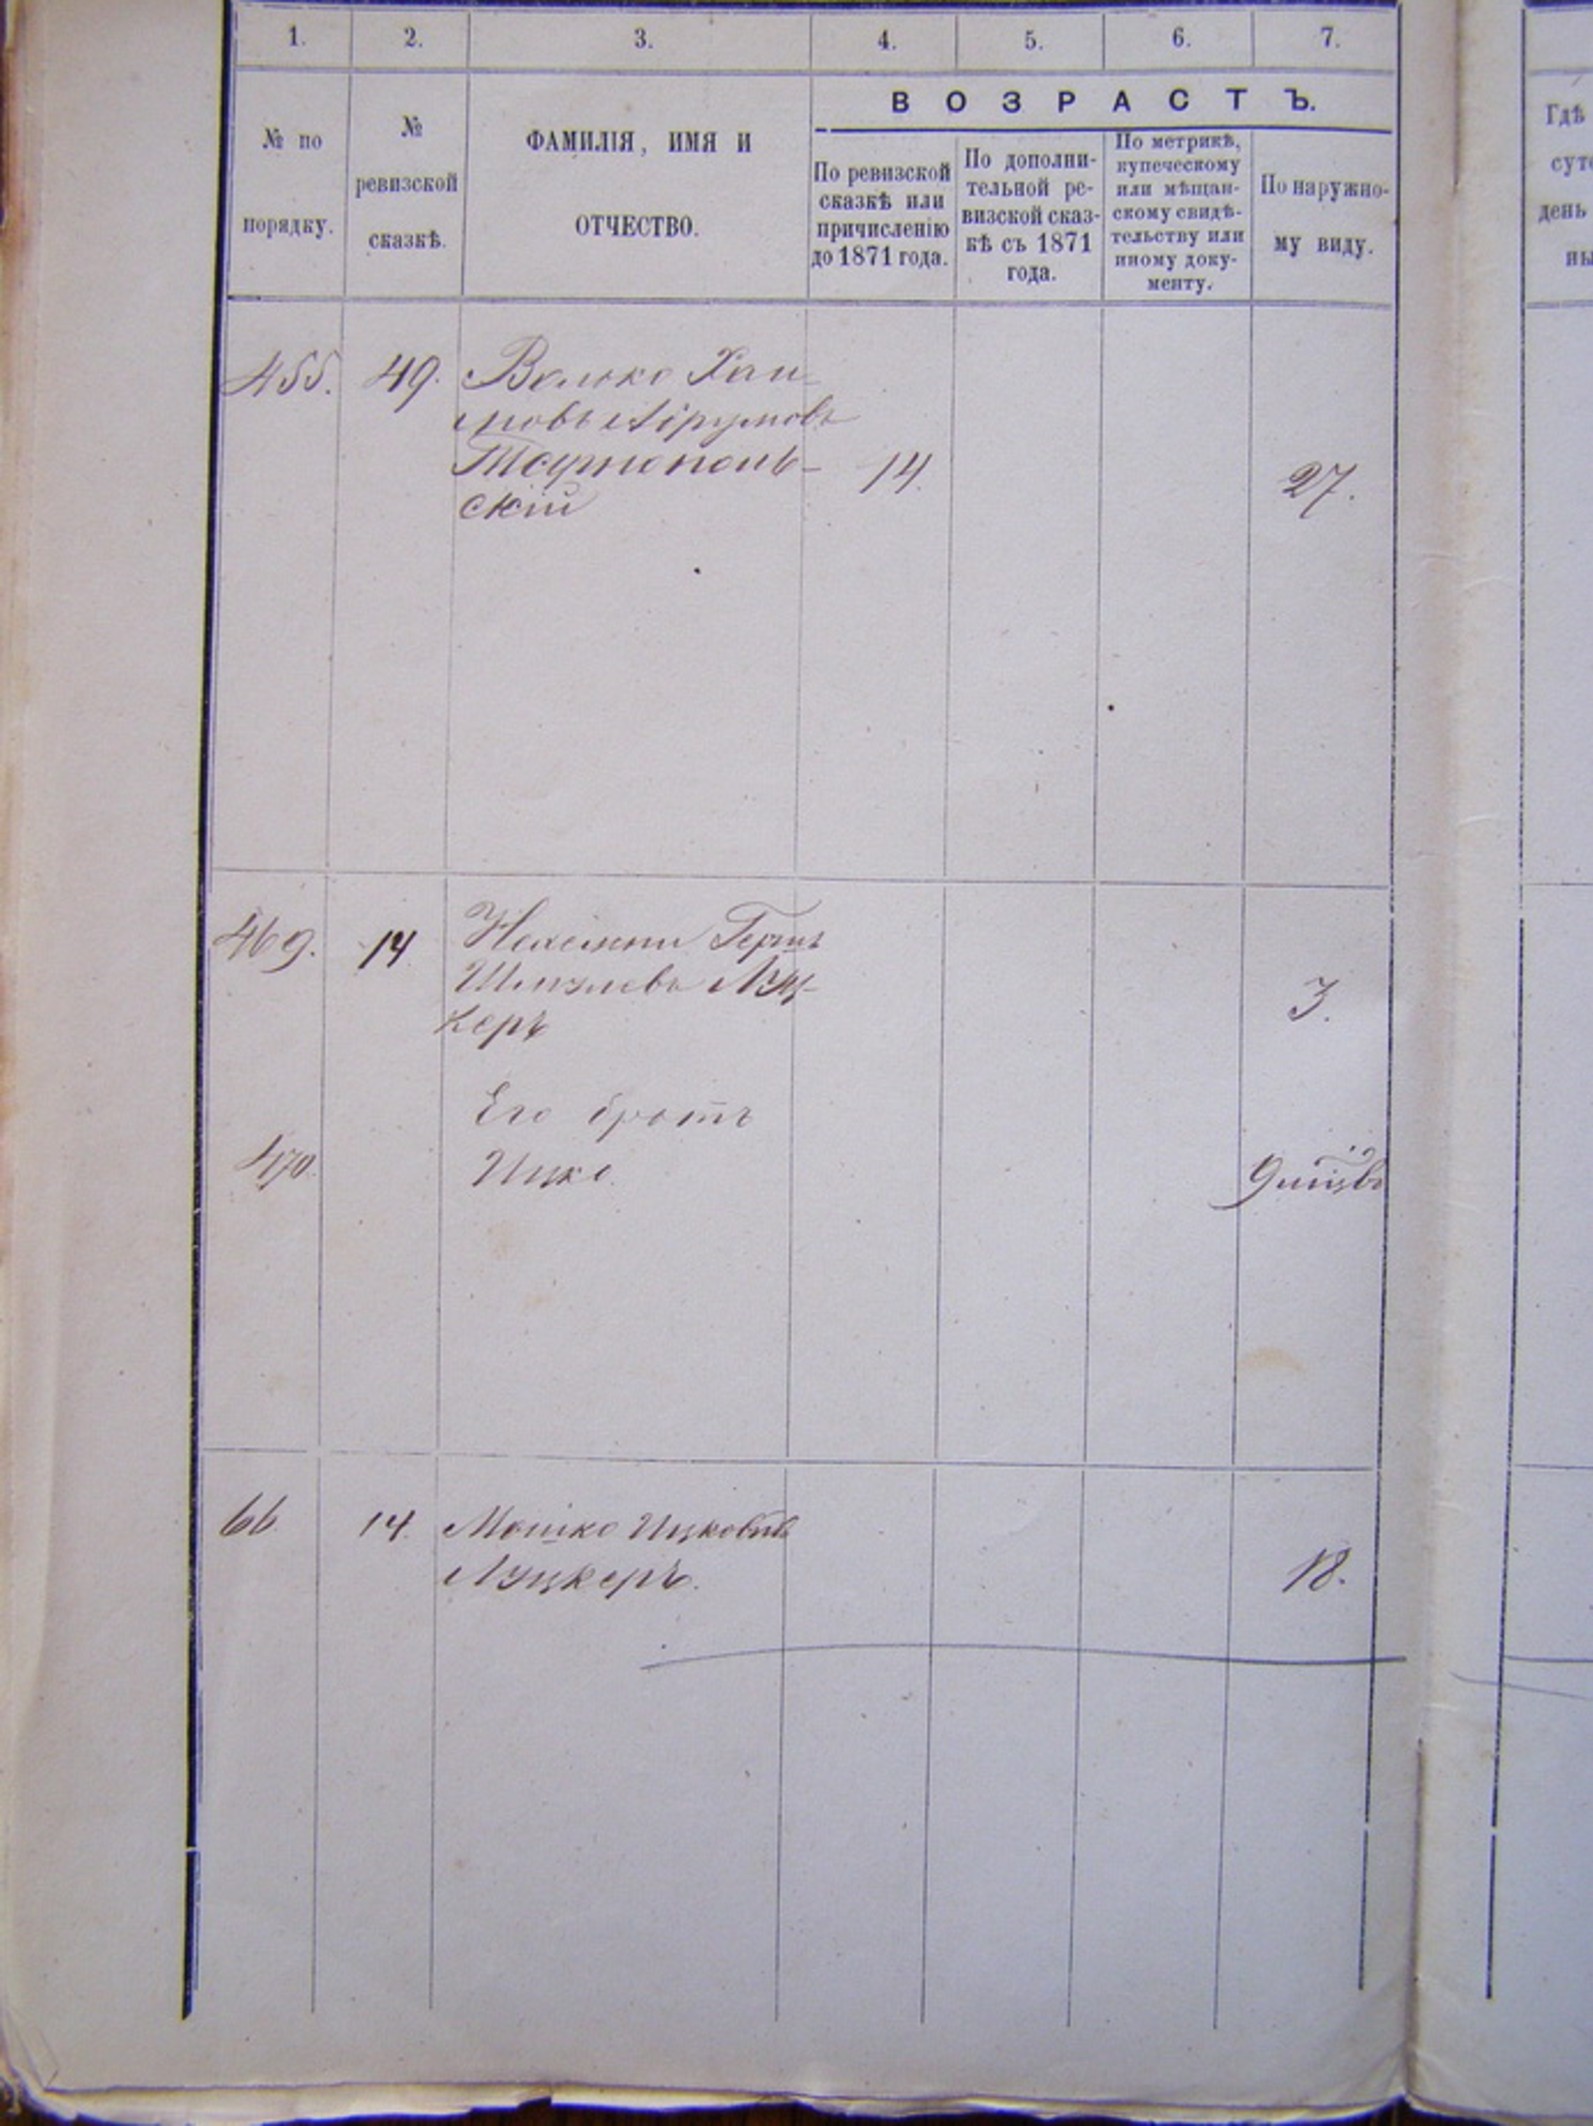 1. 2. 3. 4. 5. 6. 7.
№ по
порядку.
№
ревизской
сказкѣ.
ФАМИЛІЯ, ИМЯ И
ОТЧЕСТВО.
ВОЗРАСТЪ.
По ревизской
сказкѣ или
причисленію
до 1871 года.
По дополни-
тельной ре-
визской сказ-
кѣ съ 1871
года.
По метрикѣ,
купеческому
или мѣщан-
скому свидѣ-
тельству или
иному доку-
менту.
По наружно-
му виду.
Гдѣ
суте
день
ны
455. 49. Волько Хаи-
мовъ
14. 27.
скій
469. 14 Гершъ
Шмулевъ Луц-
керъ
3.
Его братъ
470. Ицко.
9
66 14. Мошко Ицковъ
Луцкеръ.
18.